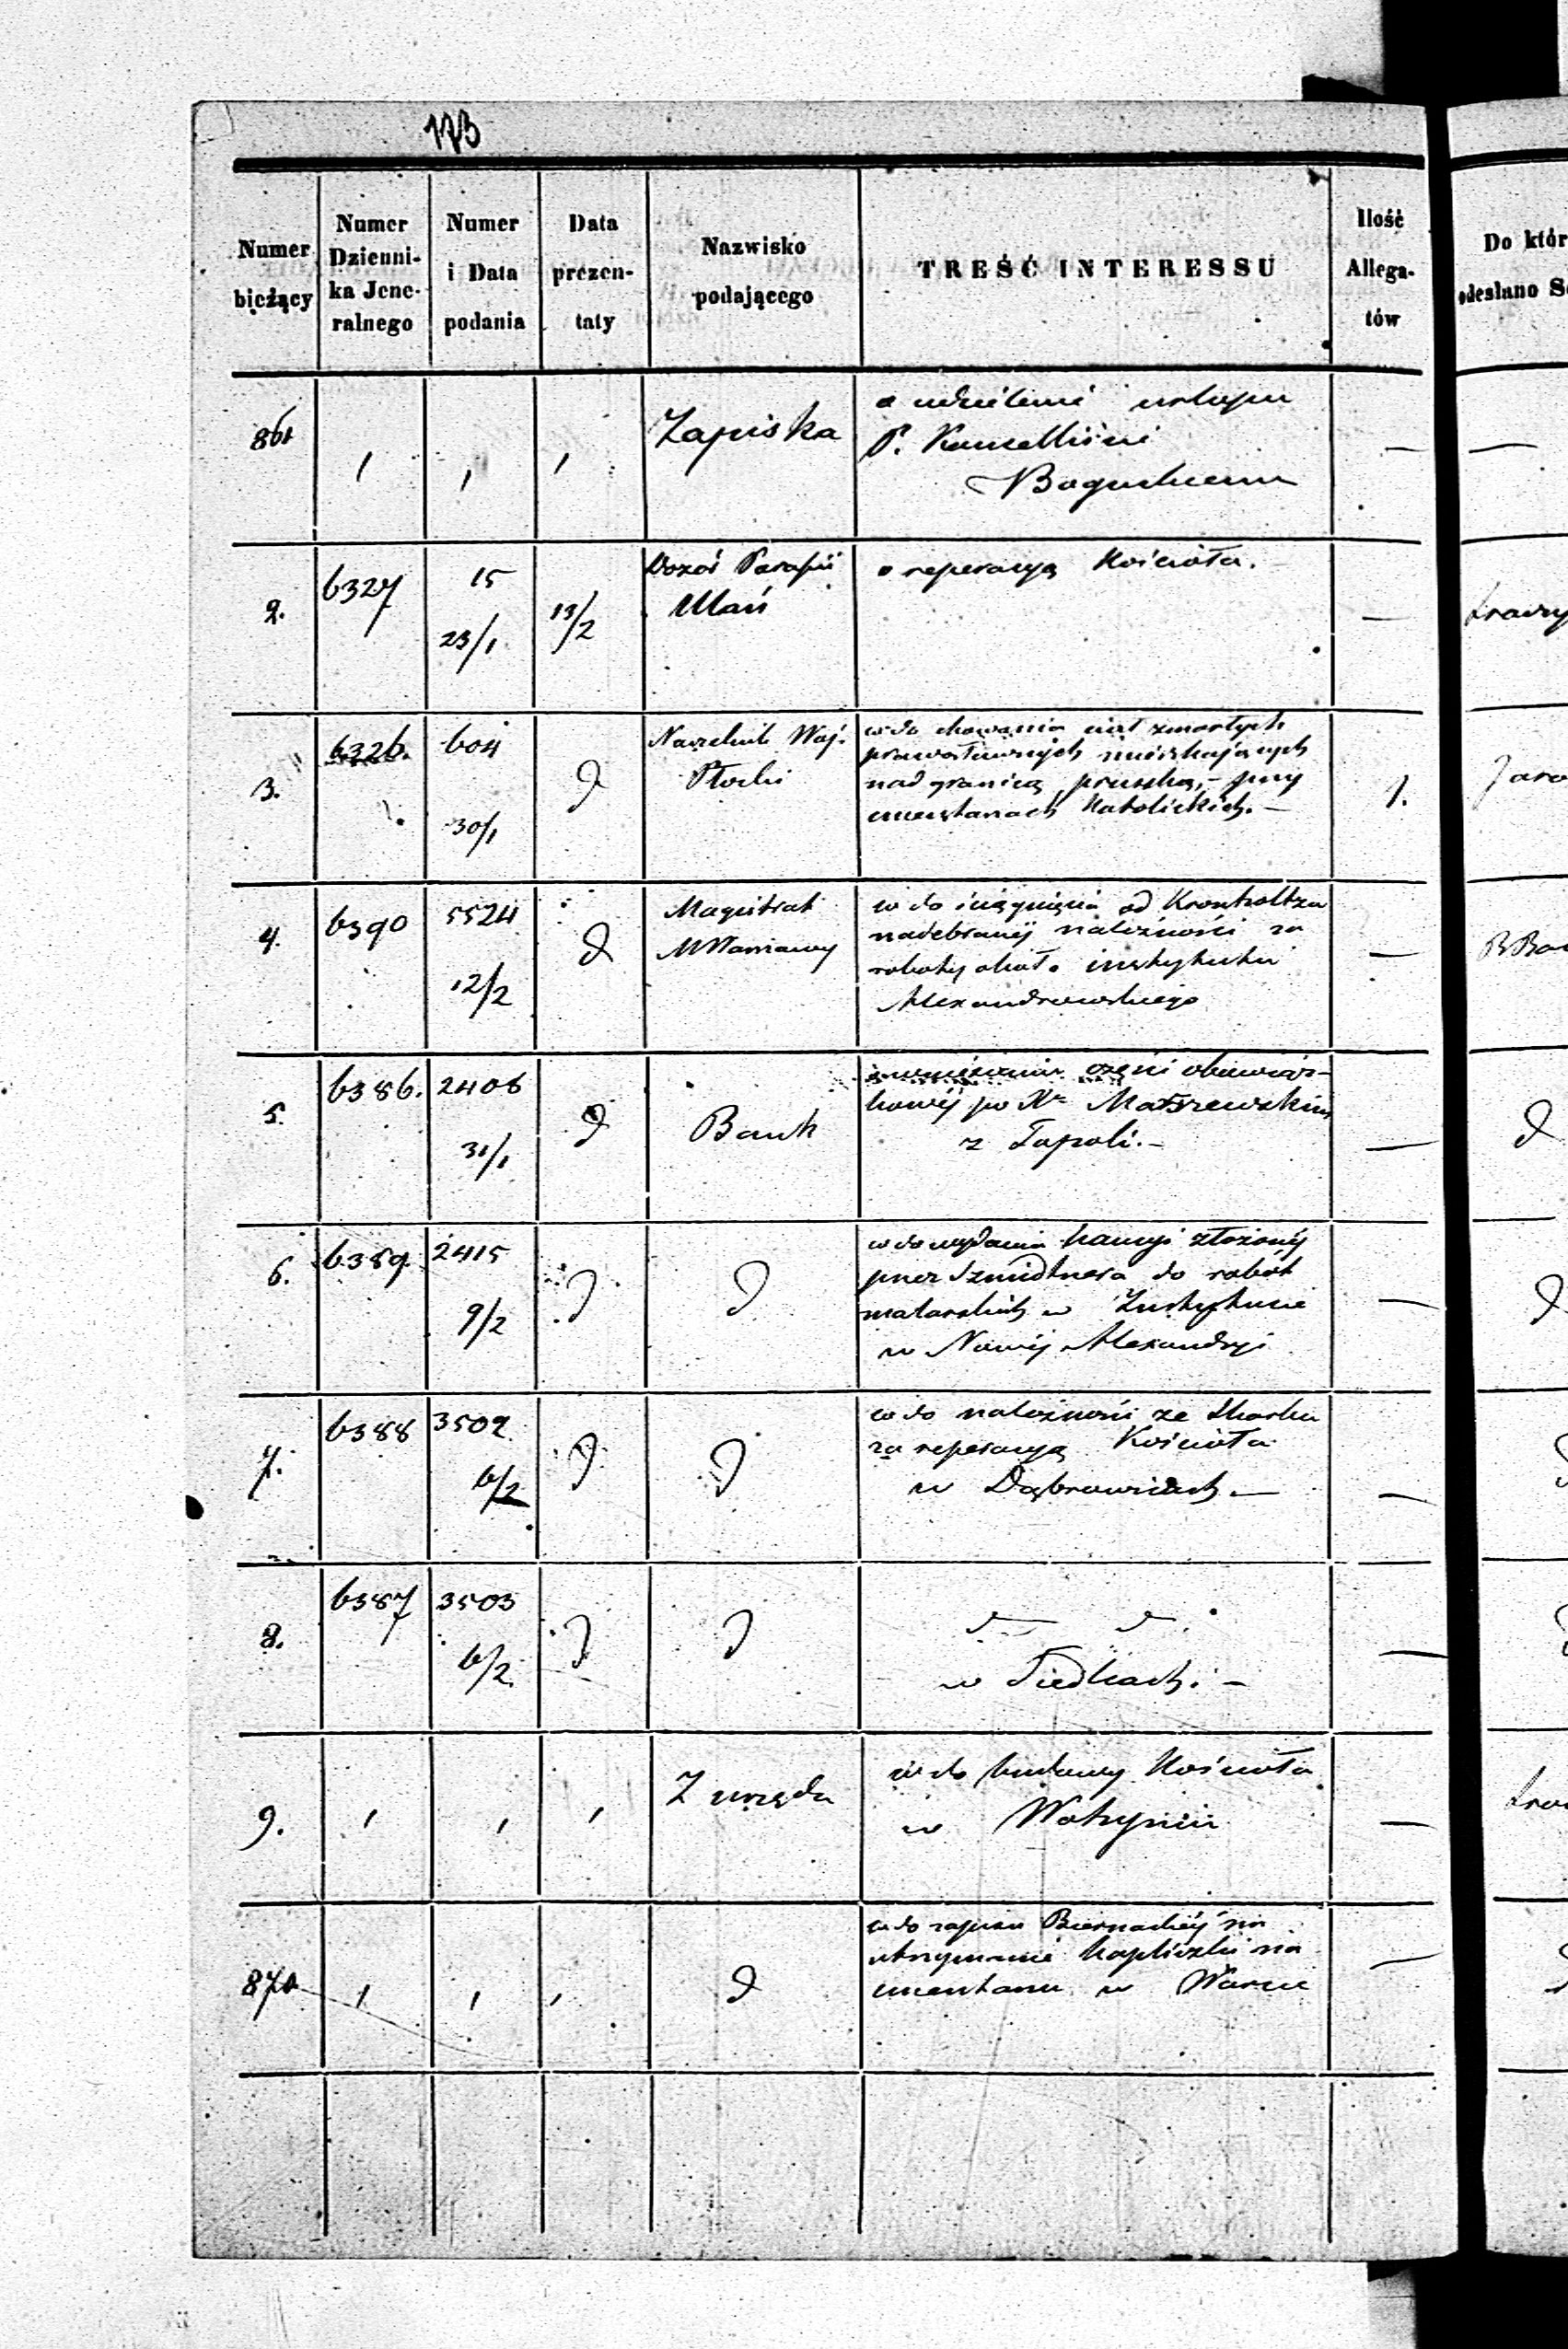 173
Numer bieżący
Numer Dzienni- ka Jene- ralnego
Numer i Data podania
Data prezen- taty
Nazwisko podającego
TREŚĆ INTERESSU
Ilość Allega- tów
Do któr
odesłano S
861
Zapiska
o udzielenie urlopu
P. Kancelliście
Boguckiemu
—
—
2.
6327
15
23/1
13/2
Dozór Parafii
Ułań
o reperacyą Kościoła.
—
3.
6326.
604
30/1
d
Naczelnik Woj.
Płocki
w do chowania ciał zmarłych
prawosławnych mieszkających
nad granicą pruską, - przy
cmentarzach Katolickich. —
1.
Jaro
4.
6390
5524
12/2
d
Magistrat
M Warszawy
w do ściągnięcia od Kronholtza
należności za
roboty około instytutu
Alexandrowskiego
—
5.
6386.
2408
31/1
d
Bank
części obowiąz-
kowéj po Xe
z Topoli. —
—
d
6.
6389
2415
9/2
d
d
w do wydania kaucyi złożonéj
przez Szmidtnera do robót
malarskich w Instytucie
w Nowéj Alexandryi
—
d
7.
6388
3502
6/2
d
d
w do należności ze Skarbu
za reperacyą Kościoła
w Dąbrowicach. —
—
8.
6387
3503
6/2
d
d
d d
w Siedlcach. —
—
9.
Z urzędu
w do budowy Kościoła
w Wohyniu
—
870
d
w do zapisu Biernackiéj na
utrzymanie kapliczki na
cmentarzu w Warcie
—